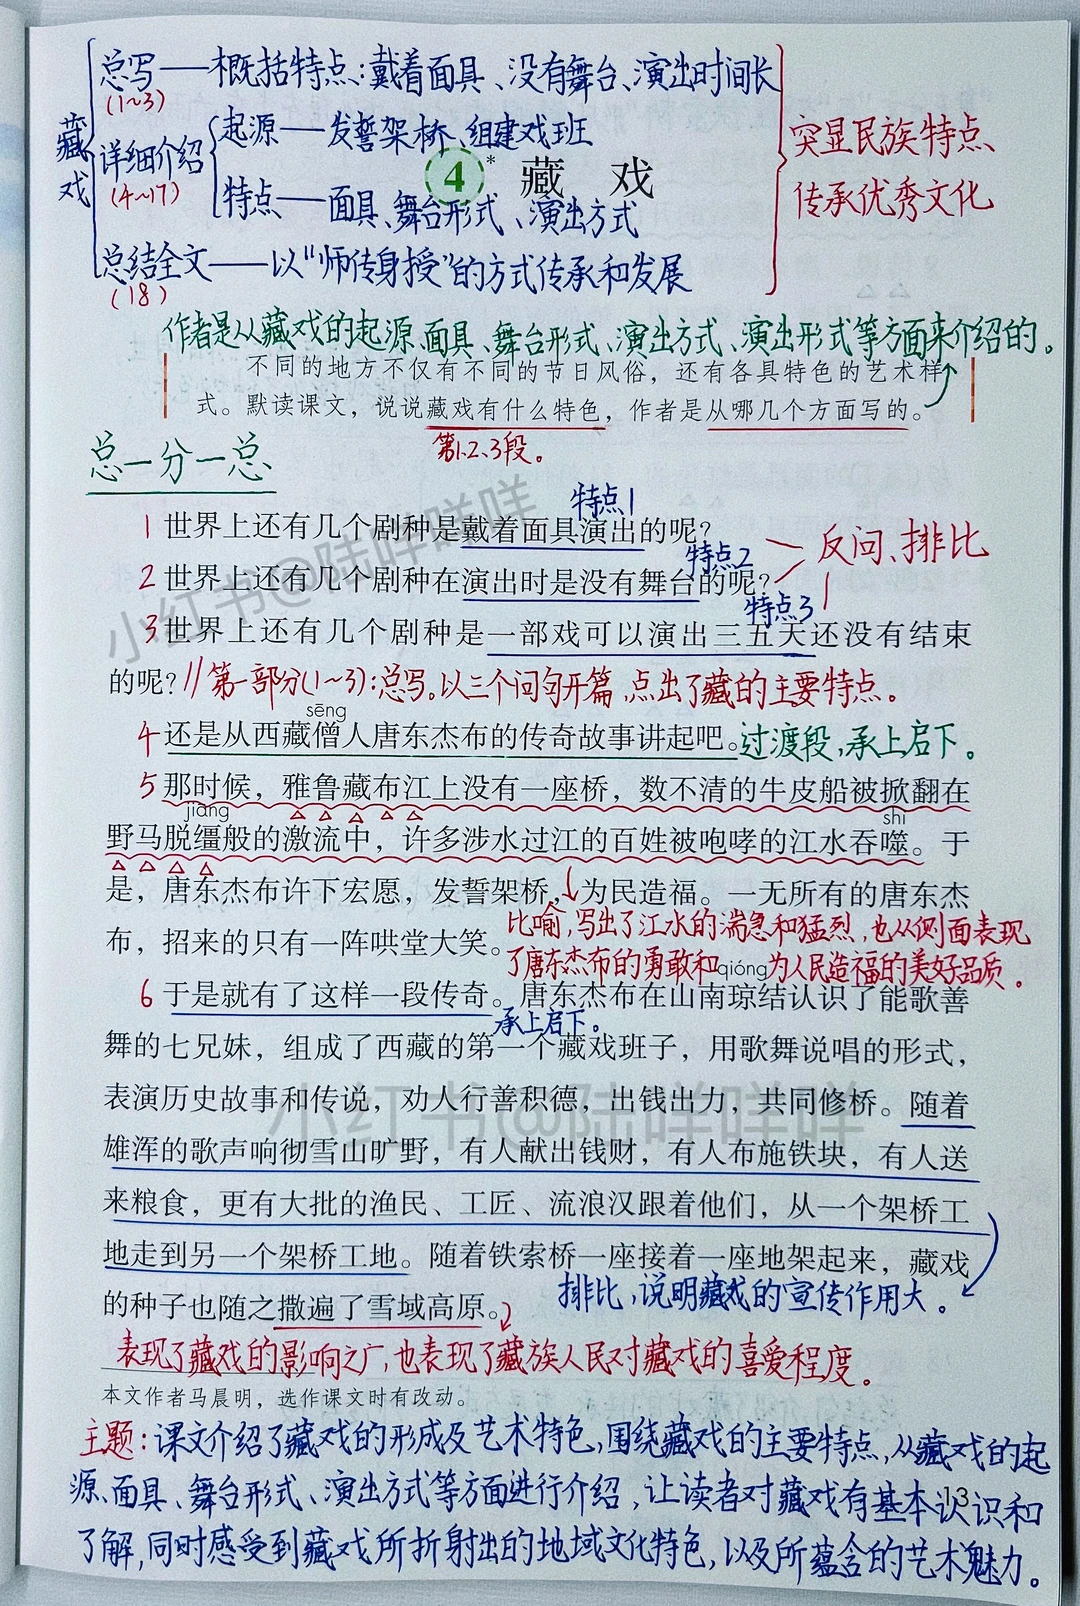 总写——概括特点:戴着面具、没有舞台、演出时间长
(1~3)
藏戏
详细介绍
(4~17)
起源——发誓架桥、组建戏班
4* 藏 戏
特点——面具、舞台形式、演出方式
总结全文——以“师传身授”的方式传承和发展
(18)
突显民族特点
传承优秀文化
作者是从藏戏的起源、面具、舞台形式、演出方式、演出形式等方面来介绍的。
不同的地方不仅有不同的节日风俗，还有各具特色的艺术样
式。默读课文，说说藏戏有什么特色，作者是从哪几个方面写的。
第1、2、3段。
总一分一总
特点1
1 世界上还有几个剧种是戴着面具演出的呢？
特点2
反问、排比
2 世界上还有几个剧种在演出时是没有舞台的呢？
特点3
3 世界上还有几个剧种是一部戏可以演出三五天还没有结束
的呢？//第一部分(1~3):总写。以三个问句开篇,点出了藏的主要特点。
sēng
4 还是从西藏僧人唐东杰布的传奇故事讲起吧。过渡段,承上启下。
5 那时候，雅鲁藏布江上没有一座桥，数不清的牛皮船被掀翻在
jiāng
shì
野马脱缰般的激流中，许多涉水过江的百姓被咆哮的江水吞噬。于
是，唐东杰布许下宏愿，发誓架桥，为民造福。一无所有的唐东杰
布，招来的只有一阵哄堂大笑。
比喻,写出了江水的湍急和猛烈,也从侧面表现
了唐东杰布的勇敢和为人民造福的美好品质。
qióng
6 于是就有了这样一段传奇。唐东杰布在山南琼结认识了能歌善
承上启下。
舞的七兄妹，组成了西藏的第一个藏戏班子，用歌舞说唱的形式，
表演历史故事和传说，劝人行善积德，出钱出力，共同修桥。随着
雄浑的歌声响彻雪山旷野，有人献出钱财，有人布施铁块，有人送
来粮食，更有大批的渔民、工匠、流浪汉跟着他们，从一个架桥工
地走到另一个架桥工地。随着铁索桥一座接着一座地架起来，藏戏
排比,说明藏戏的宣传作用大。
的种子也随之撒遍了雪域高原。
表现了藏戏的影响之广,也表现了藏族人民对藏戏的喜爱程度。
本文作者马晨明，选作课文时有改动。
主题:课文介绍了藏戏的形成及艺术特色,围绕藏戏的主要特点,从藏戏的起
源、面具、舞台形式、演出方式等方面进行介绍,让读者对藏戏有基本认识和
13
了解,同时感受到藏戏所折射出的地域文化特色,以及所蕴含的艺术魅力。
小红书@陆咩咩咩
小红书@陆咩咩咩